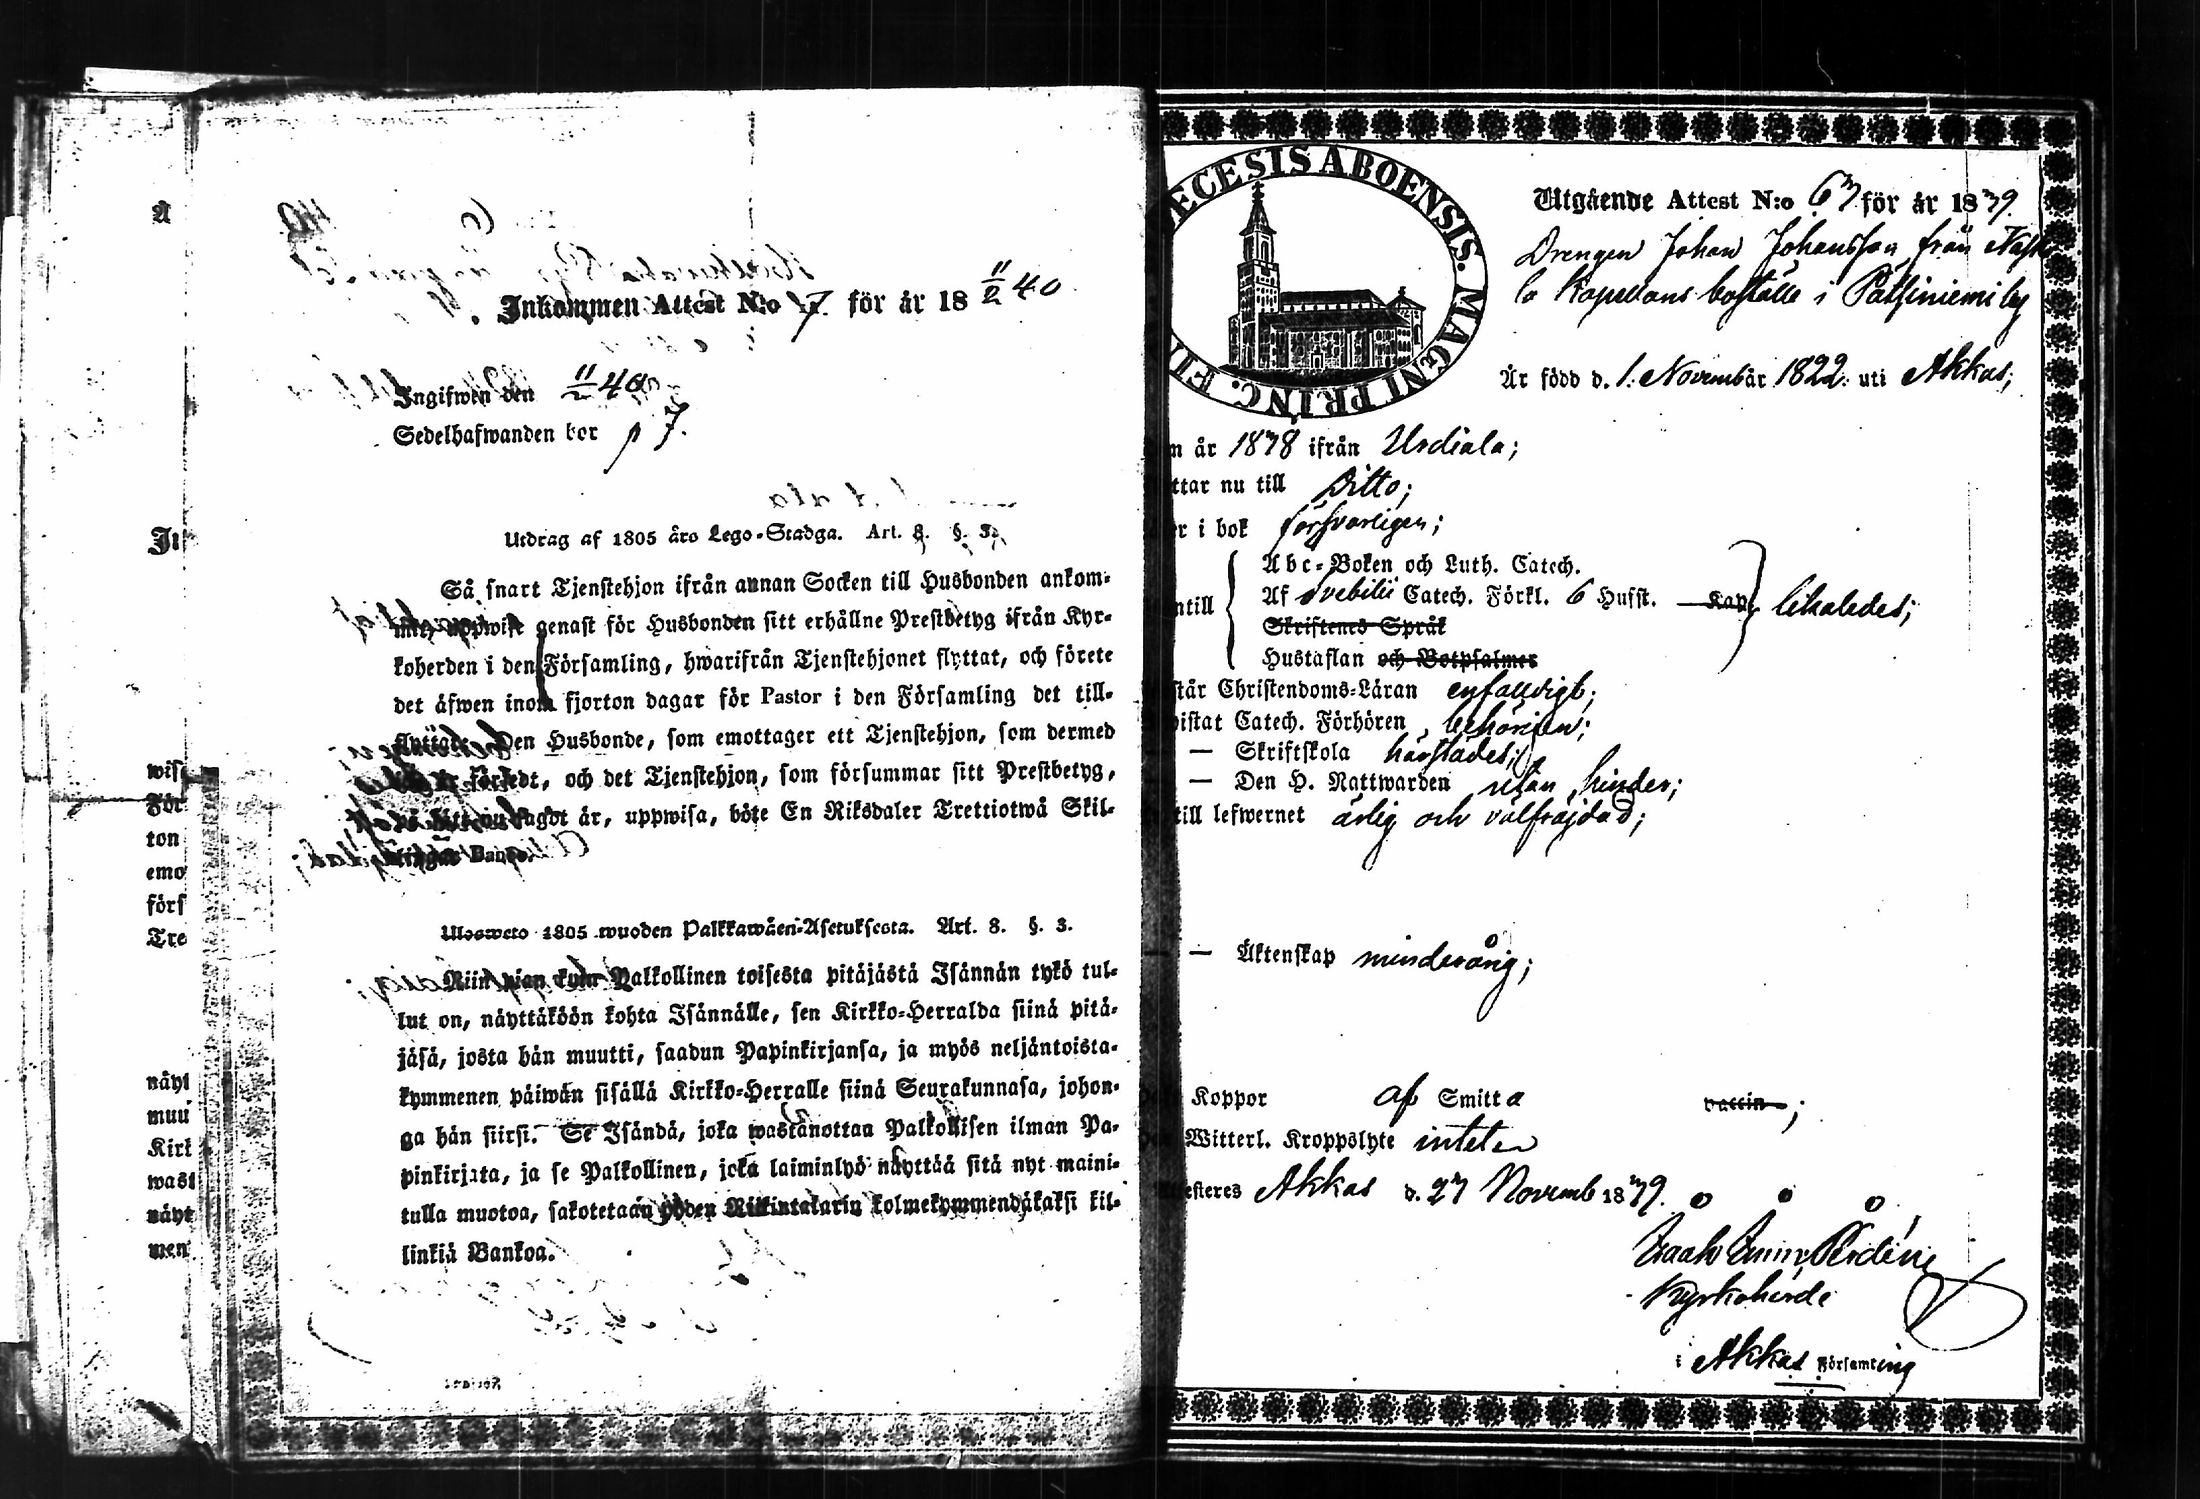 A
It
wis
För
ton
emo
förs
Tre
näyt
muu
Kirk
wast
näyt
men
Inkommen Attest N:o 7. för år 18 11/2 40
Ingifwen den 11/2 40
Sedelhafwanden bor p 7.
Utdrag af 1805 års Lego-Stadga. Art. 8. §. 3.
Så snart Tjenstehjon ifrån annan Socken till Husbonden ankom-
mit, uppwise genast för Husbonden sitt erhållne Prestbetyg ifrån Kyr-
koherden i den Församling, hwarifrån Tjenstehjonet flyttat, och förete
det äfwen inom fjorton dagar för Pastor i den Församling det till-
flyttat. Den Husbonde, som emottager ett Tjenstehjon, som dermed
är försedt, och det Tjenstehjon, som försummar sitt Prestbetyg,
nu sagdt är, uppwisa, böte En Riksdaler Trettiotwå Skil-
lingar Banco.
Ulosweto 1805 wuoden Palkkawäen-Asetuksesta. Art. 8. §. 3.
Niin pian kuin Palkollinen toisesta pitäjästä Isännän tykö tul-
lut on, näyttäköön kohta Isännälle, sen Kirkko-Herralda siinä pitä-
jäsä, josta hän muutti, saadun Papinkirjansa, ja myös neljäntoista-
kymmenen päiwän sisällä Kirkko-Herralle siinä Seurakunnasa, johon-
ga hän siirsi. Se Isändä, joka wastanottaa Palkollisen ilman Pa-
pinkirjata, ja se Palkollinen, joka laiminlyö näyttää sitä nyt maini-
tulla muotoa, sakotetaan yhden Riikintalarin kolmekymmendäkaksi kil-
linkiä Bankoa.
ECESIS ABOENSIS. MAGNI PRINC. FI
Utgående Attest N:o 67 för år 1839.
Drengen Johan Johansson från
Kapellans boställe i Pätsiniemi by
Är född d. 1. Novemb år 1822. uti Akkas;
m år 1838 ifrån Urdiala;
ttar nu till Ditto;
er i bok försvarligen;
Abc-Boken och Luth. Catech.
ntill Af Svebilii Catech. Förkl. 6 Husst. Kap. likaledes;
Skriftenes Språk
Hustaflan och Botpsalmer
står Christendoms-Läran enfalldigt;
istat Catech. Förhören behörigen;
— Skriftskola härstädes;
— Den H. Nattwarden utan hinder;
till lefwernet ärlig och välfräjdad;
— Äktenskap minderårig;
Koppor af Smitta vaccin;
Witterl. Kroppslyte intet
esteres Akkas d. 27 Novemb 1839.
Kyrkoherde
i Akkas Församling